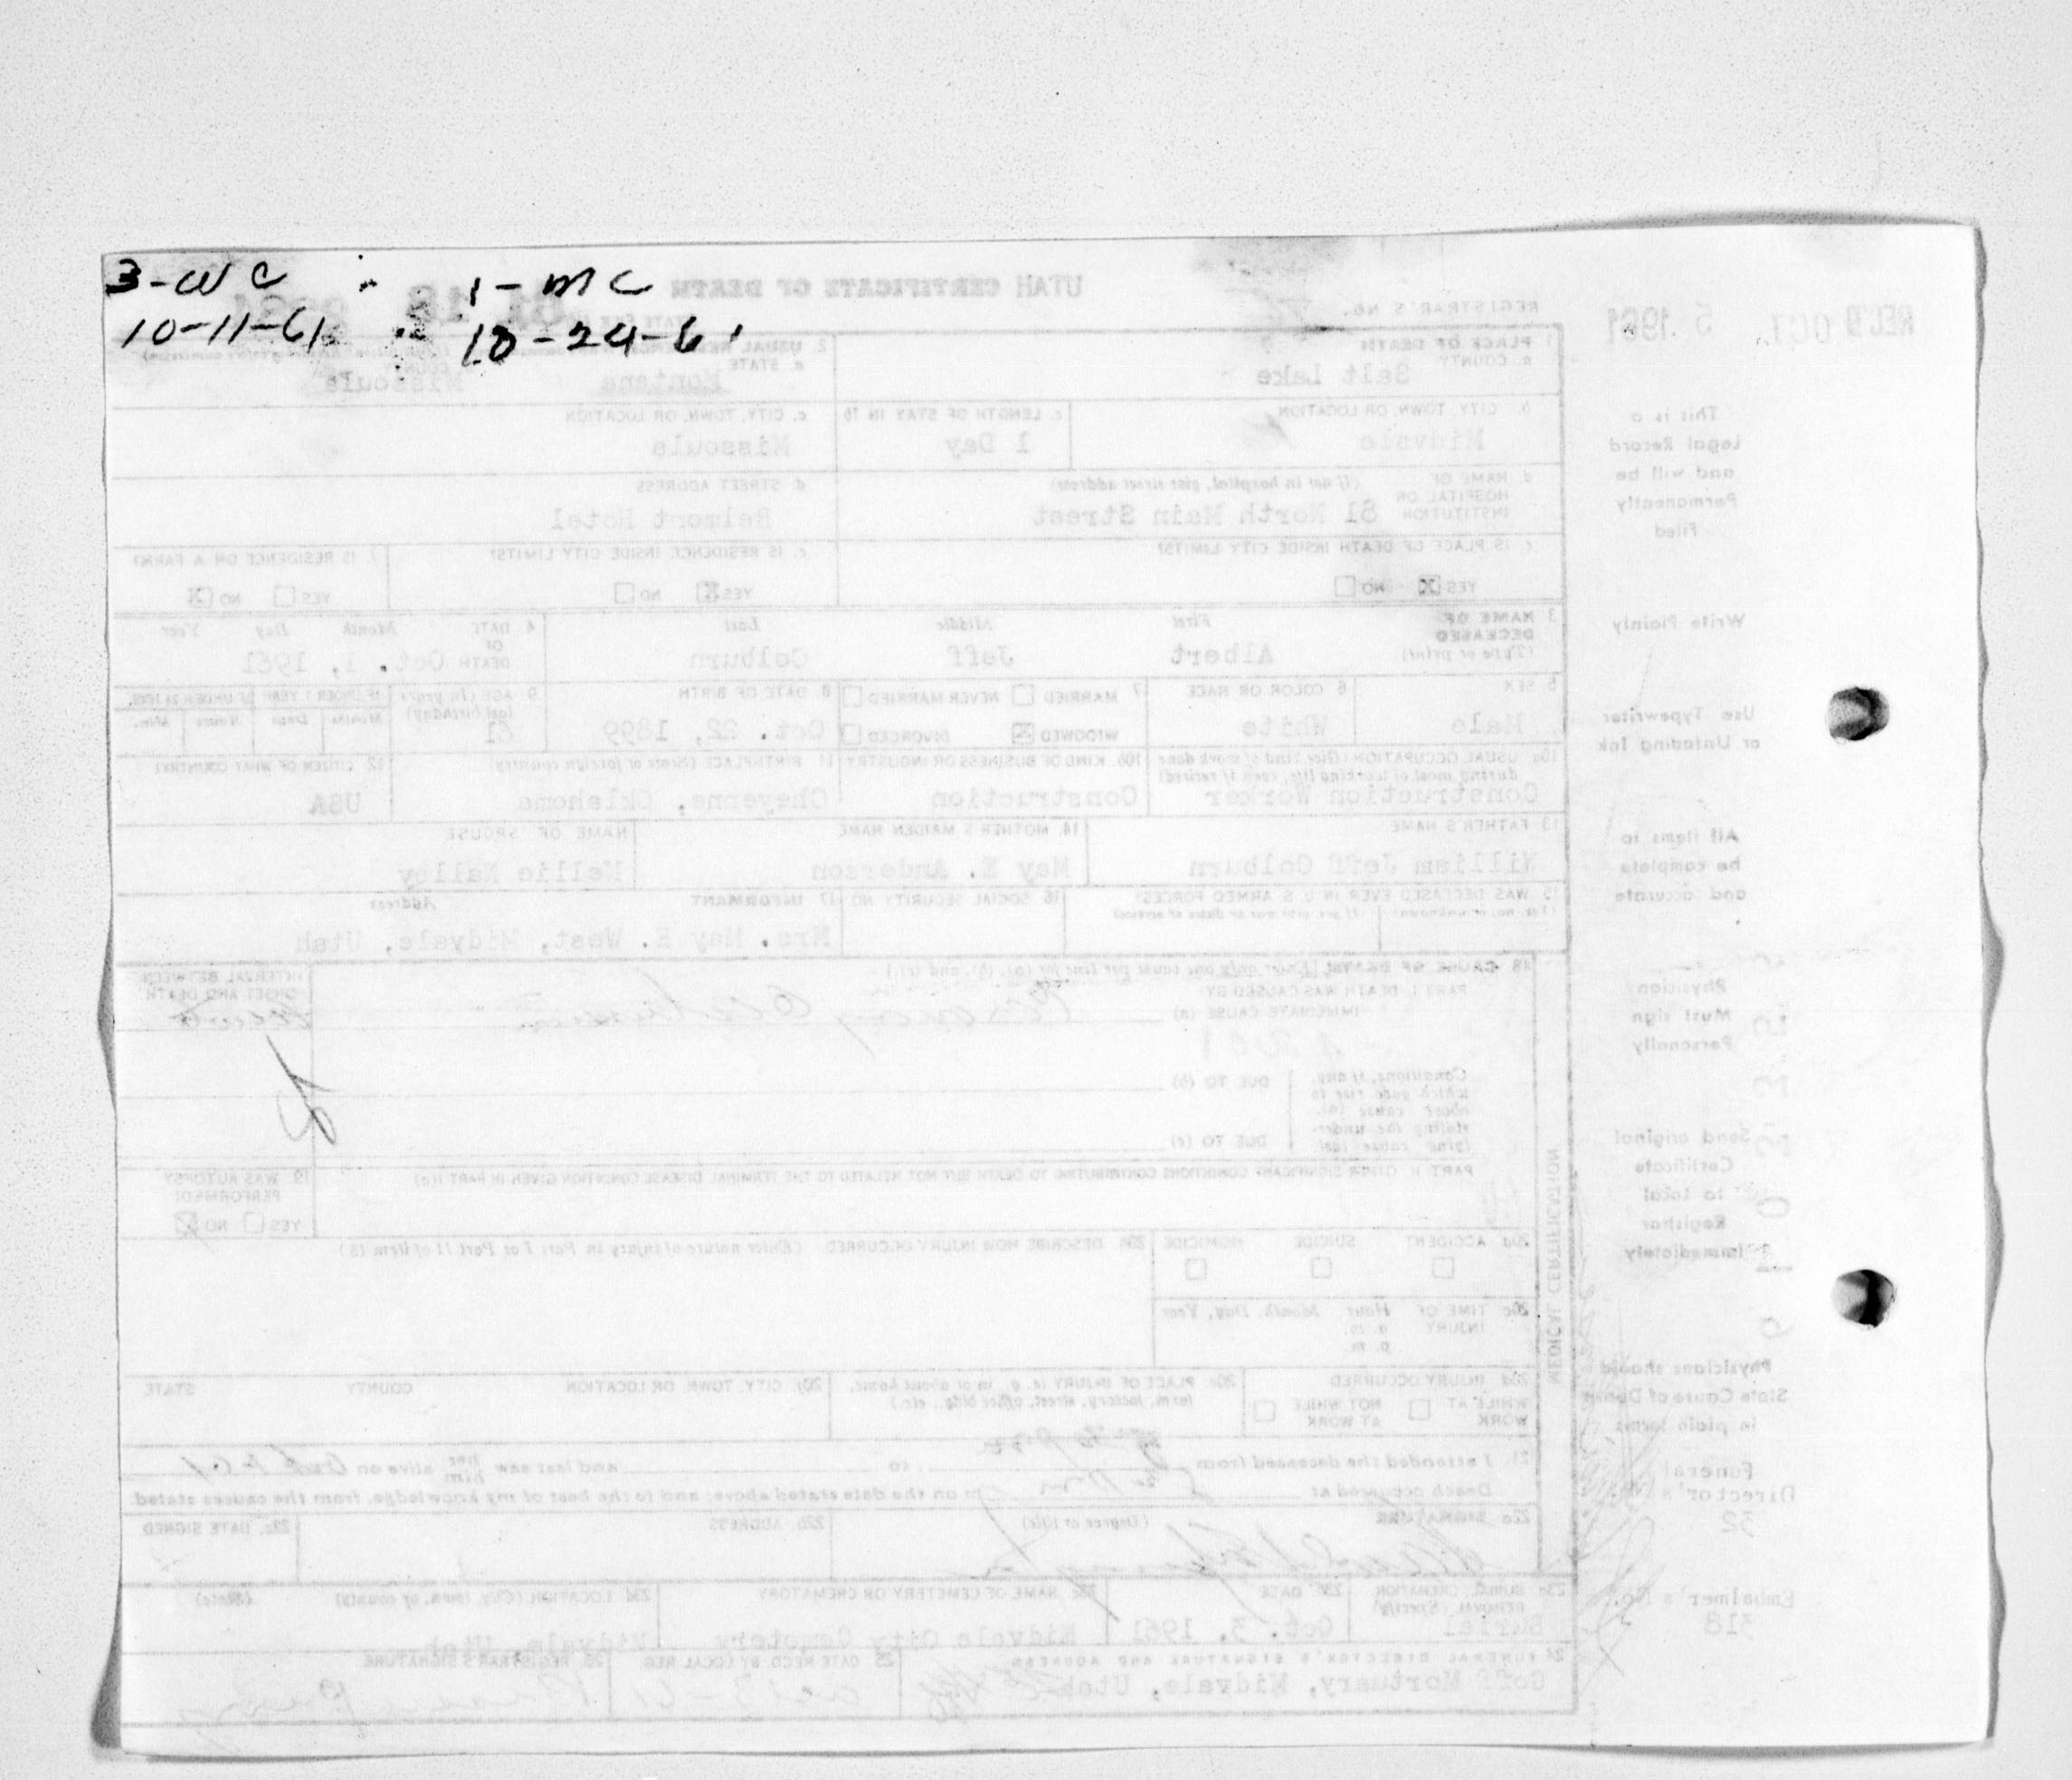 3-WC 1-MC
10-11-61 10-24-61
UTAH CERTIFICATE OF DEATH
REGISTRAR'S No.
REC'D OCT 5 1961
1. PLACE OF DEATH
a. COUNTY
Salt Lake
2. USUAL RESIDENCE
a. STATE
Montana
COUNTY
Missoula
b. CITY, TOWN, OR LOCATION
Midvale
c. LENGTH OF STAY IN 1b
1 Day
c. CITY, TOWN, OR LOCATION
Missoula
d. NAME OF HOSPITAL OR INSTITUTION
(If not in hospital, give street address)
81 North Main Street
d. STREET ADDRESS
Belmont Hotel
e. IS PLACE OF DEATH INSIDE CITY LIMITS?
YES X NO
e. IS RESIDENCE INSIDE CITY LIMITS?
YES X NO
f. IS RESIDENCE ON A FARM?
YES NO X
3. NAME OF DECEASED
(Type or print)
First Middle Last
Albert Jeff Colburn
4. DATE OF DEATH
Month Day Year
Oct. 1, 1961
5. SEX
Male
6. COLOR OR RACE
White
7. MARRIED NEVER MARRIED
WIDOWED X DIVORCED
8. DATE OF BIRTH
Oct. 22, 1899
9. AGE (In years last birthday)
61
IF UNDER 1 YEAR IF UNDER 24 HRS.
Months Days Hours Min.
10a. USUAL OCCUPATION (Give kind of work done during most of working life, even if retired)
Construction Worker
10b. KIND OF BUSINESS OR INDUSTRY
Construction
11. BIRTHPLACE (State or foreign country)
Cheyenne, Oklahoma
12. CITIZEN OF WHAT COUNTRY?
USA
13. FATHER'S NAME
William Jeff Colburn
14. MOTHER'S MAIDEN NAME
May E. Anderson
NAME OF SPOUSE
Nellie Nalley
15. WAS DECEASED EVER IN U.S. ARMED FORCES?
(Yes, no, or unknown) (If yes, give war or dates of service)
16. SOCIAL SECURITY NO.
17. INFORMANT Address
Mrs. May E. West, Midvale, Utah
18. CAUSE OF DEATH [Enter only one cause per line for (a), (b), and (c).]
PART I. DEATH WAS CAUSED BY
IMMEDIATE CAUSE (a)
Coronary Occlusion
INTERVAL BETWEEN ONSET AND DEATH
Conditions, if any, which gave rise to above cause (a), stating the underlying cause last
DUE TO (b)
DUE TO (c)
PART II. OTHER SIGNIFICANT CONDITIONS CONTRIBUTING TO DEATH BUT NOT RELATED TO THE TERMINAL DISEASE CONDITION GIVEN IN PART I(a)
19. WAS AUTOPSY PERFORMED?
YES NO X
MEDICAL CERTIFICATION
20a. ACCIDENT SUICIDE HOMICIDE
20b. DESCRIBE HOW INJURY OCCURRED. (Enter nature of injury in Part I or Part II of item 18.)
20c. TIME OF INJURY
Hour Month, Day, Year
a. m.
p. m.
20d. INJURY OCCURRED
WHILE AT WORK NOT WHILE AT WORK
20e. PLACE OF INJURY (e. g., in or about home, farm, factory, street, office bldg., etc.)
20f. CITY, TOWN, OR LOCATION COUNTY STATE
21. I attended the deceased from to and last saw her him alive on
Death occurred at m on the date stated above; and to the best of my knowledge, from the causes stated.
22a. SIGNATURE (Degree or title)
22b. ADDRESS
22c. DATE SIGNED
23a. BURIAL, CREMATION REMOVAL (Specify)
Burial
23b. DATE
Oct. 3, 1961
23c. NAME OF CEMETERY OR CREMATORY
Midvale City Cemetery
23d. LOCATION (City, town, or county) (State)
Midvale, Utah
24. FUNERAL DIRECTOR'S SIGNATURE AND ADDRESS
Goff Mortuary, Midvale, Utah
25. DATE RECD BY LOCAL REG.
26. REGISTRAR'S SIGNATURE
This is a
Legal Record
and will be
Permanently
Filed
Write Plainly
Use Typewriter
or Unfading Ink
All items to
be complete
and accurate
Physician
Must sign
Personally
Send original
Certificate
to local
Registrar
Immediately
Physicians should
State Cause of Death
in plain terms
Funeral
Director's
32
Embalmer's No.
318